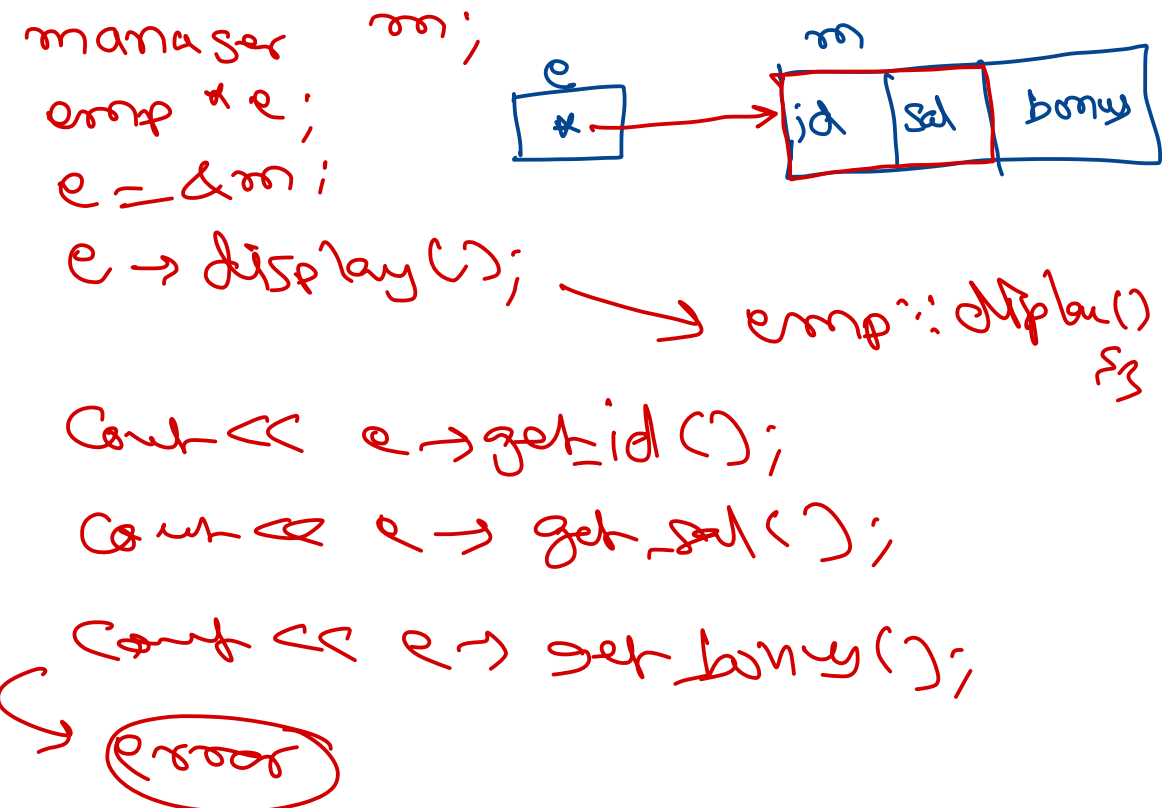 manager m;
emp *e;
e = &m;
e → display();
e
*
m
id sal bonus
emp::display()
{}
Cout << e → get_id();
Cout << e → get_sal();
Cout << e → get_bonus();
error